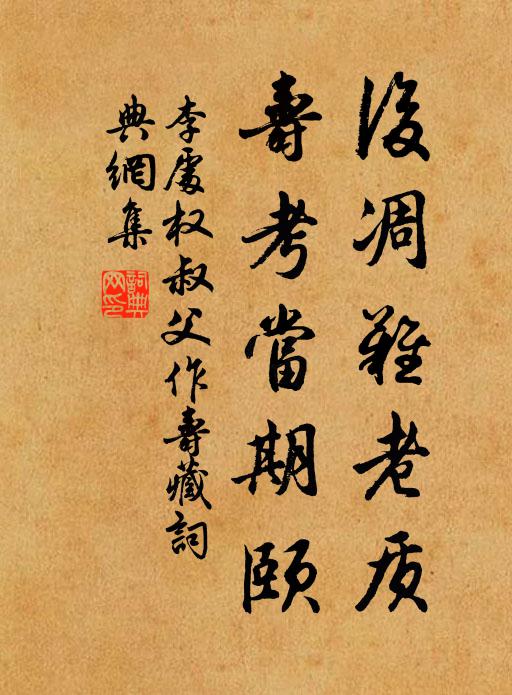 後凋難老质
壽考當期頤
李處权叔父作壽藏詞
典網集
詞典
网印